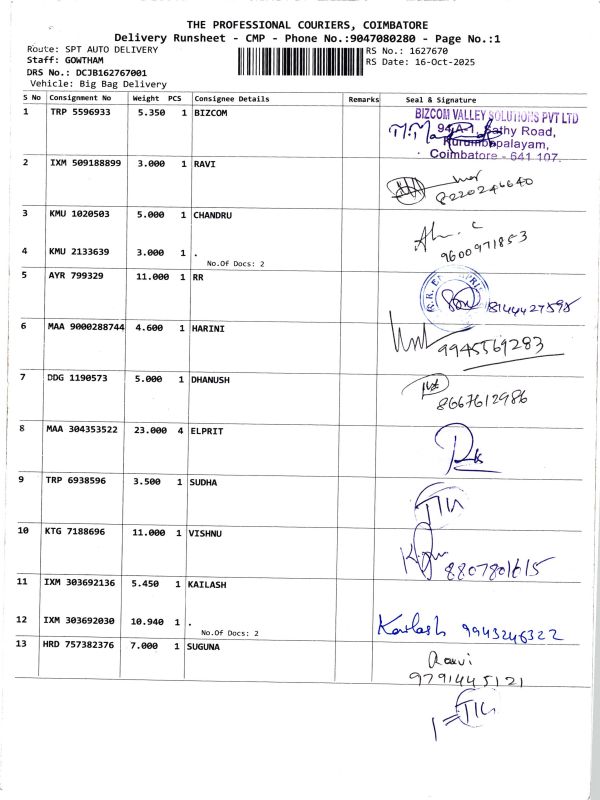 THE PROFESSIONAL COURIERS, COIMBATORE
Delivery Runsheet - CMP - Phone No.:9047080280 - Page No.:1
Route: SPT AUTO DELIVERY
RS No.: 1627670
Staff: GOWTHAM
RS Date: 16-Oct-2025
DRS No.: DCJB162767001
Vehicle: Big Bag Delivery
S No Consignment No Weight PCS Consignee Details Remarks Seal & Signature
1 TRP 5596933 5.350 1 BIZCOM
BIZCOM VALLEY SOLUTIONS PVT LTD
94/A-1, Sathy Road,
Kurumbapalayam,
Coimbatore - 641 107.
2 IXM 509188899 3.000 1 RAVI
8220246640
3 KMU 1020503 5.000 1 CHANDRU
9600971853
4 KMU 2133639 3.000 1 .
No.Of Docs: 2
5 AYR 799329 11.000 1 RR
8144427598
6 MAA 9000288744 4.600 1 HARINI
9945569283
7 DDG 1190573 5.000 1 DHANUSH
8667612986
8 MAA 304353522 23.000 4 ELPRIT
9 TRP 6938596 3.500 1 SUDHA
10 KTG 7188696 11.000 1 VISHNU
8807801615
11 IXM 303692136 5.450 1 KAILASH
12 IXM 303692030 10.940 1 .
Kailash 9943246322
No.Of Docs: 2
13 HRD 757382376 7.000 1 SUGUNA
Ravi
9791445121